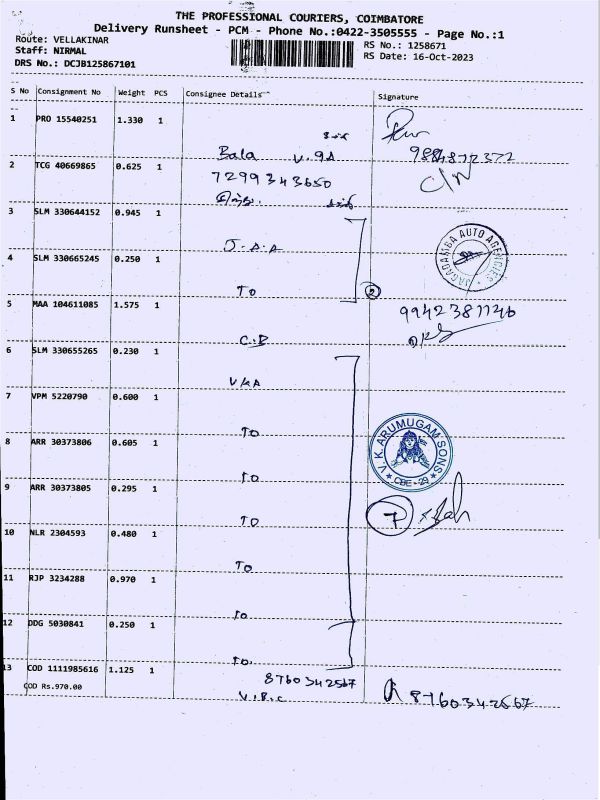 THE PROFESSIONAL COURIERS, COIMBATORE
Delivery Runsheet - PCM - Phone No.:0422-3505555 - Page No.:1
Route: VELLAKINAR
Staff: NIRMAL
DRS No.: DCJB125867101
RS No.: 1258671
RS Date: 16-Oct-2023
S No Consignment No Weight PCS Consignee Details Signature
1 PRO 15540251 1.330 1
Bala V.GA 9884872372
2 TCG 40669865 0.625 1
7299343650
3 SLM 330644152 0.945 1
J.A.A
JAGADAMBA AUTO AGENCIES
4 SLM 330665245 0.250 1
TO 2
5 MAA 104611085 1.575 1
9942381146
C.B
6 SLM 330655265 0.230 1
VKA
7 VPM 5220790 0.600 1
TO
V.K. ARUMUGAM SONS
CBE - 29
8 ARR 30373806 0.605 1
TO
9 ARR 30373805 0.295 1
TO 7
10 NLR 2304593 0.480 1
TO
11 RJP 3234288 0.970 1
TO
12 DDG 5030841 0.250 1
TO
13 COD 1111985616 1.125 1
8760342567
COD Rs.970.00
V.B.C 8760342567